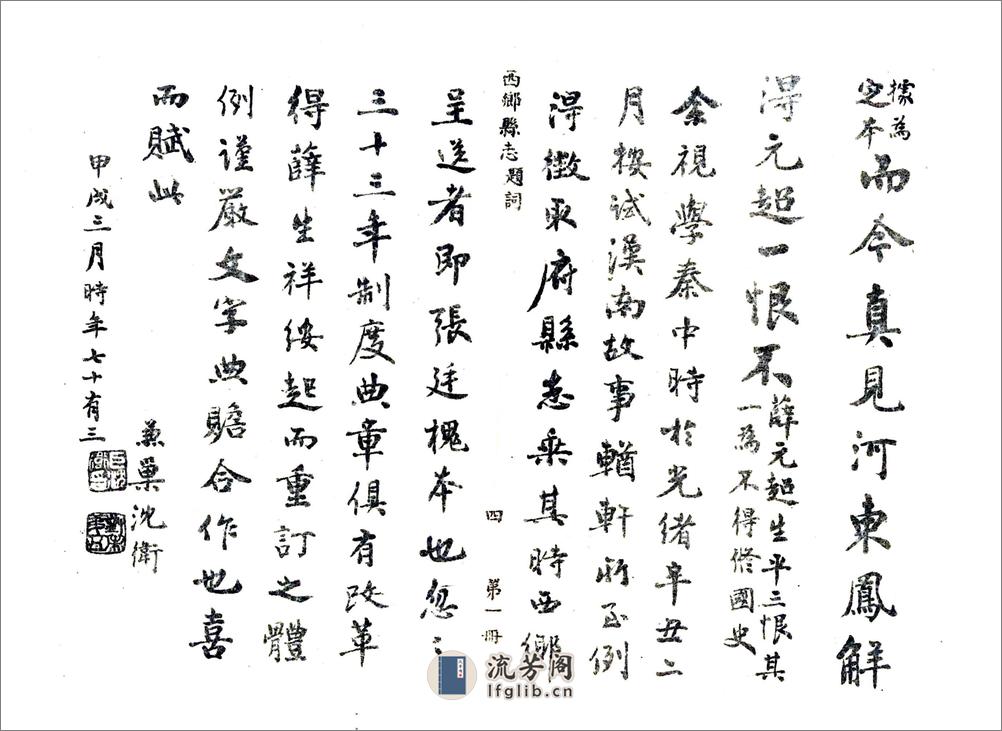 據為
定本而今真見河東鳳解
得元超一恨不薛元超生平三恨其
一為不得修國史
余視學秦中時於光緒辛丑二
月按試漢南故事輶軒所至例
得徵取府縣志乘其時西鄉
西鄉縣志題詞
四
第一冊
呈送者即張廷槐本也忽〻
三十三年制度典章俱有改革
得薛生祥綏起而重訂之體
例謹嚴文字典贍合作也喜
而賦此
兼巢沈衛
甲戌三月時年七十有三
流芳阁
lfglib.cn